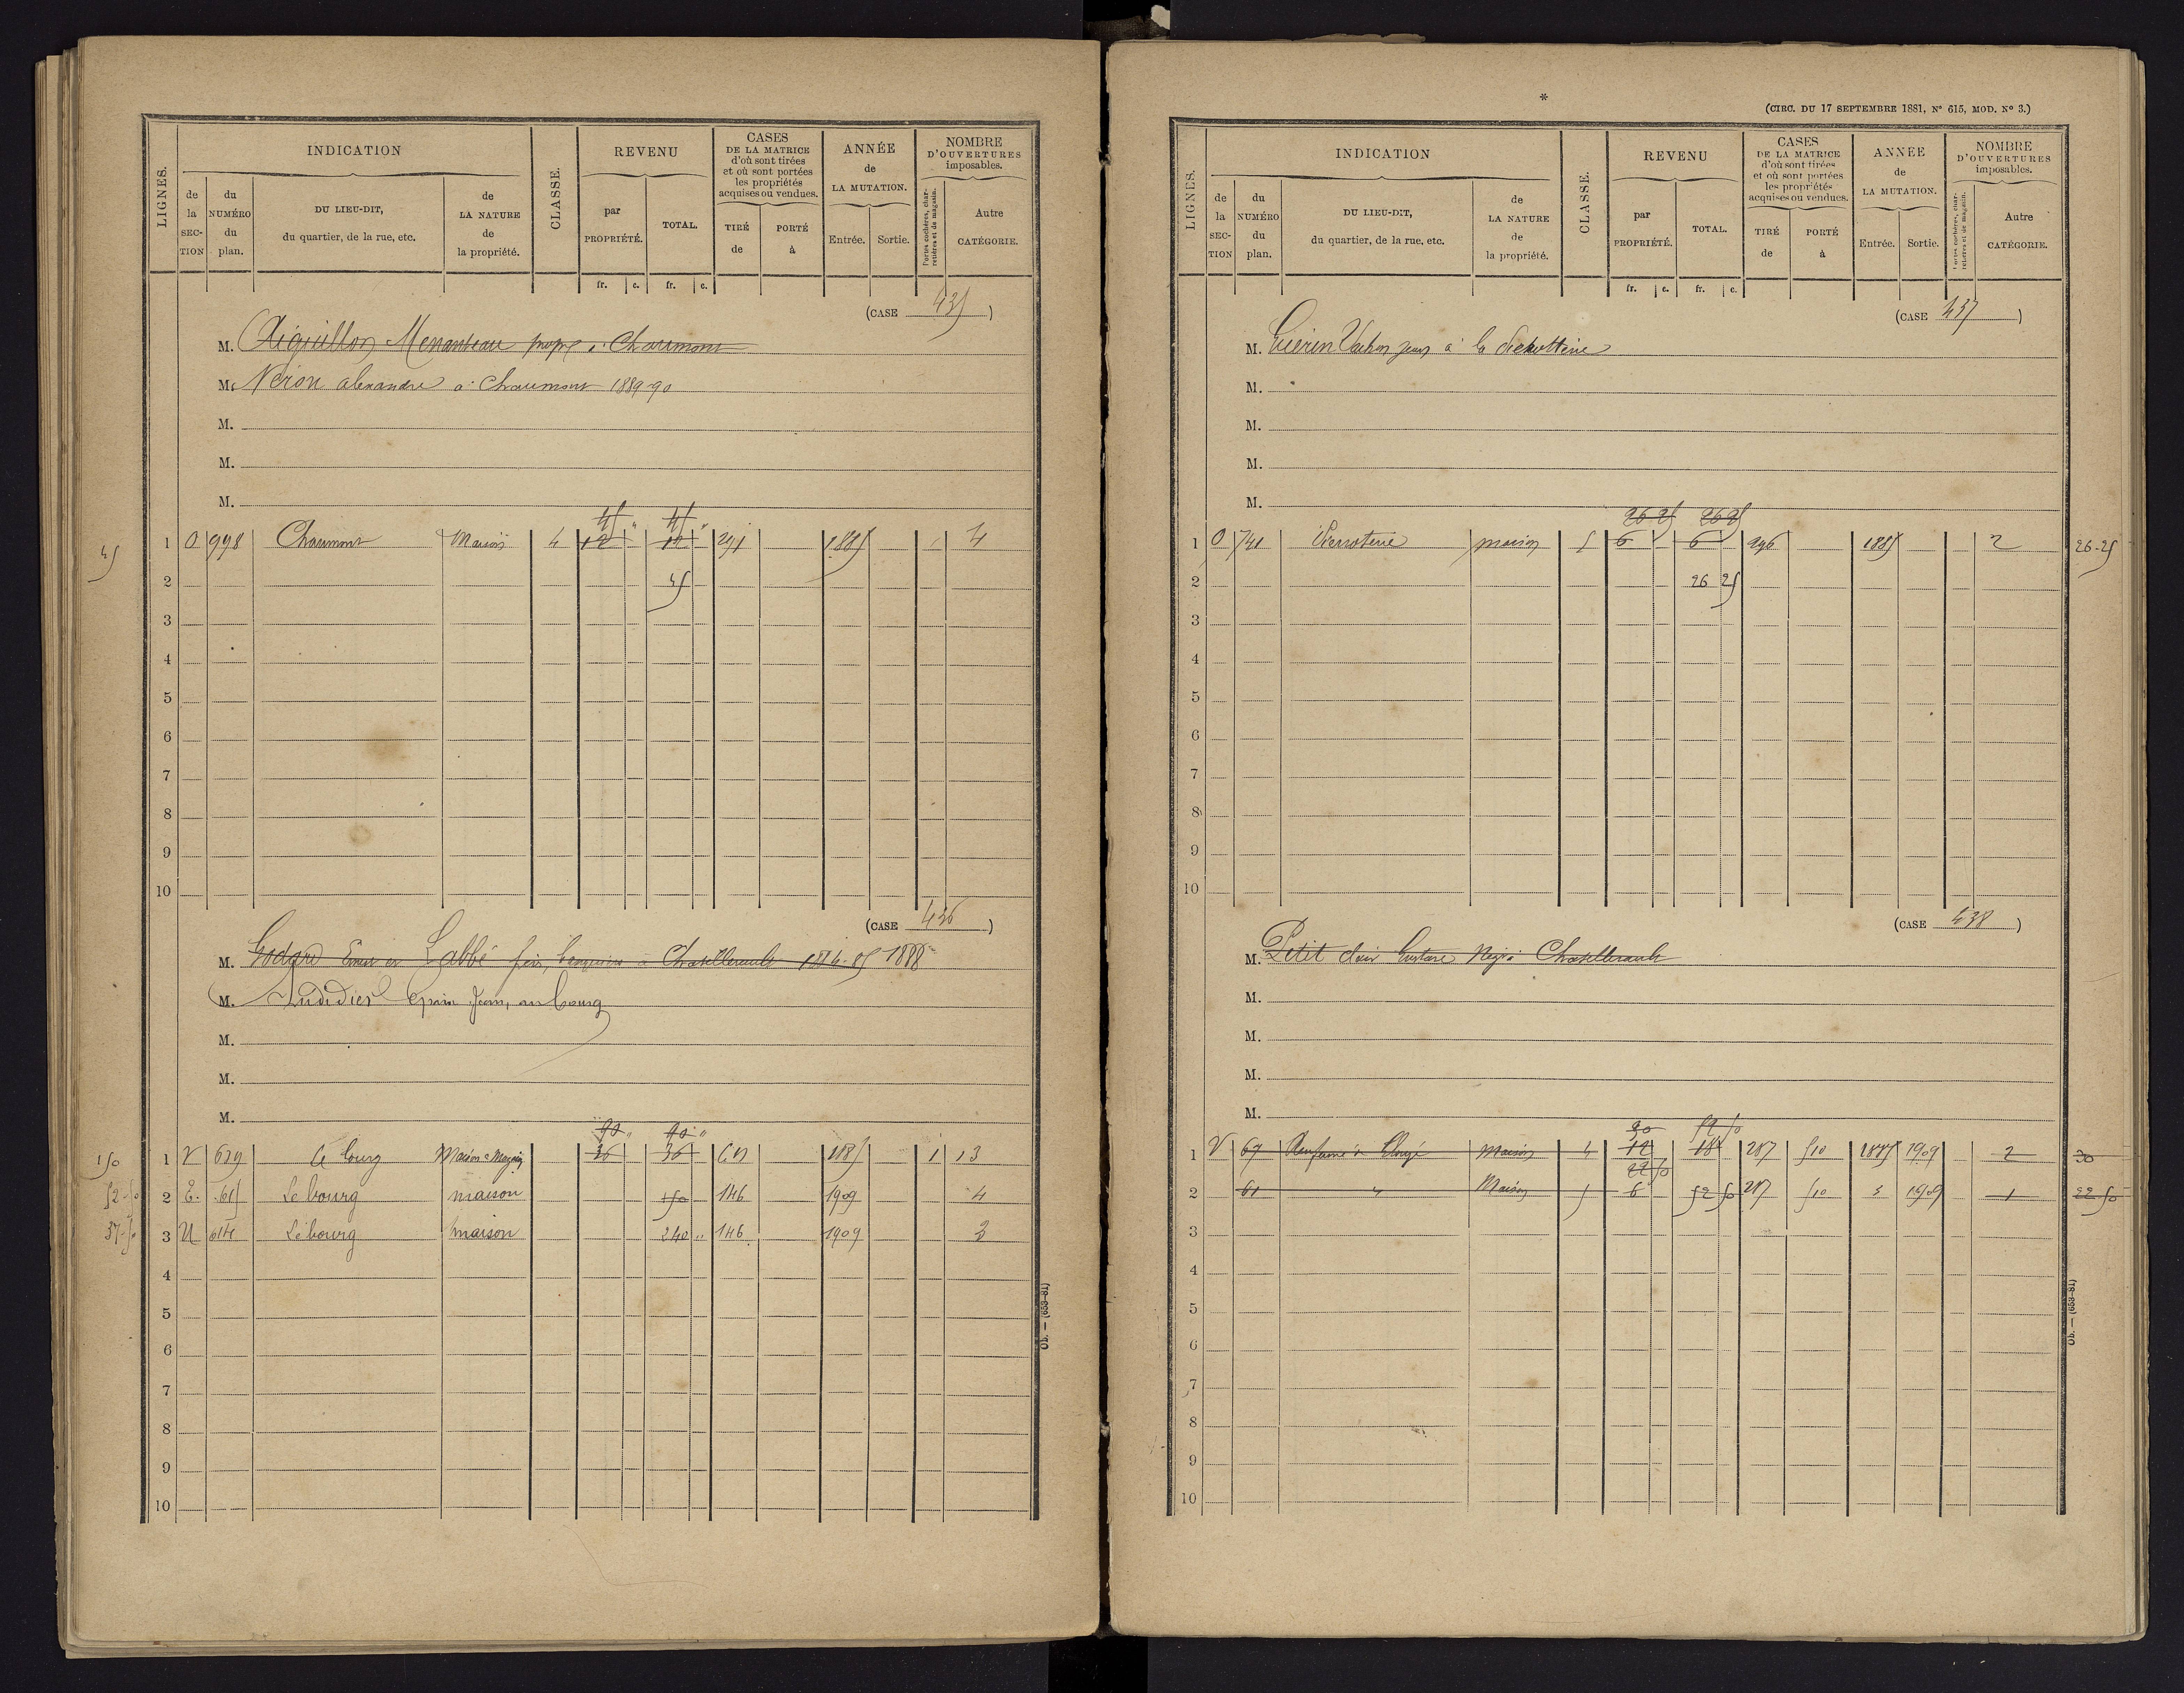 LIGNES.
INDICATION
de la SECTION
du NUMÉRO du plan.
DU LIEU-DIT, du quartier, de la rue, etc.
de LA NATURE de la propriété.
CLASSE.
REVENU
par PROPRIÉTÉ.
TOTAL.
fr. c. fr. c.
CASES DE LA MATRICE d'où sont tirées et où sont portées les propriétés acquises ou vendues.
TIRÉ de
PORTÉ à
ANNÉE de LA MUTATION.
Entrée. Sortie.
NOMBRE D'OUVERTURES imposables.
Portes cochères, charretières et de magasin.
Autre CATÉGORIE.
(CASE 435)
M. Aiguillon Menanteau propre à Chaumont
M. Neron alexandre à Chaumont 1889-90
M.
M.
M.
45 45
45 1 O 998 Chaumont Maison 4 12 12 291 1885 4
2 45
3
4
5
6
7
8
9
10
(CASE 436)
M. Godard Ernest et Labbé à Chatellerault 1888
M. Audidier Jean, au bourg
M.
M.
M.
90 90
150 1 V 629 Le bourg Maison 36 36 1885 1 13
52-50 2 E. 615 Le bourg maison 150 146 1909 4
37-50 3 U 614 Le bourg maison 240 146 1909 3
4
5
6
7
8
9
10
Ob. — (653-81)
*
(CIRC. DU 17 SEPTEMBRE 1881, N° 615, MOD. N° 3.)
LIGNES.
INDICATION
de la SECTION
du NUMÉRO du plan.
DU LIEU-DIT, du quartier, de la rue, etc.
de LA NATURE de la propriété.
CLASSE.
REVENU
par PROPRIÉTÉ.
TOTAL.
fr. c. fr. c.
CASES DE LA MATRICE d'où sont tirées et où sont portées les propriétés acquises ou vendues.
TIRÉ de
PORTÉ à
ANNÉE de LA MUTATION.
Entrée. Sortie.
NOMBRE D'OUVERTURES imposables.
Portes cochères, charretières et de magasin.
Autre CATÉGORIE.
(CASE 437)
M. Guérin Vachon à la
M.
M.
M.
M.
26 25 26 25
1 O 741 maison 5 6 6 296 1885 2 26-25
2 26 25
3
4
5
6
7
8
9
10
(CASE 438)
M. Petit Gustave Chatellerault
M.
M.
M.
M.
30 52 50
1 V 67 maison 4 12 18 287 510 1885 1909 2 30
22 50
2 61 " Maison 5 6 52 50 287 510 1909 1 22 50
3
4
5
6
7
8
9
10
Ob. — (653-81)